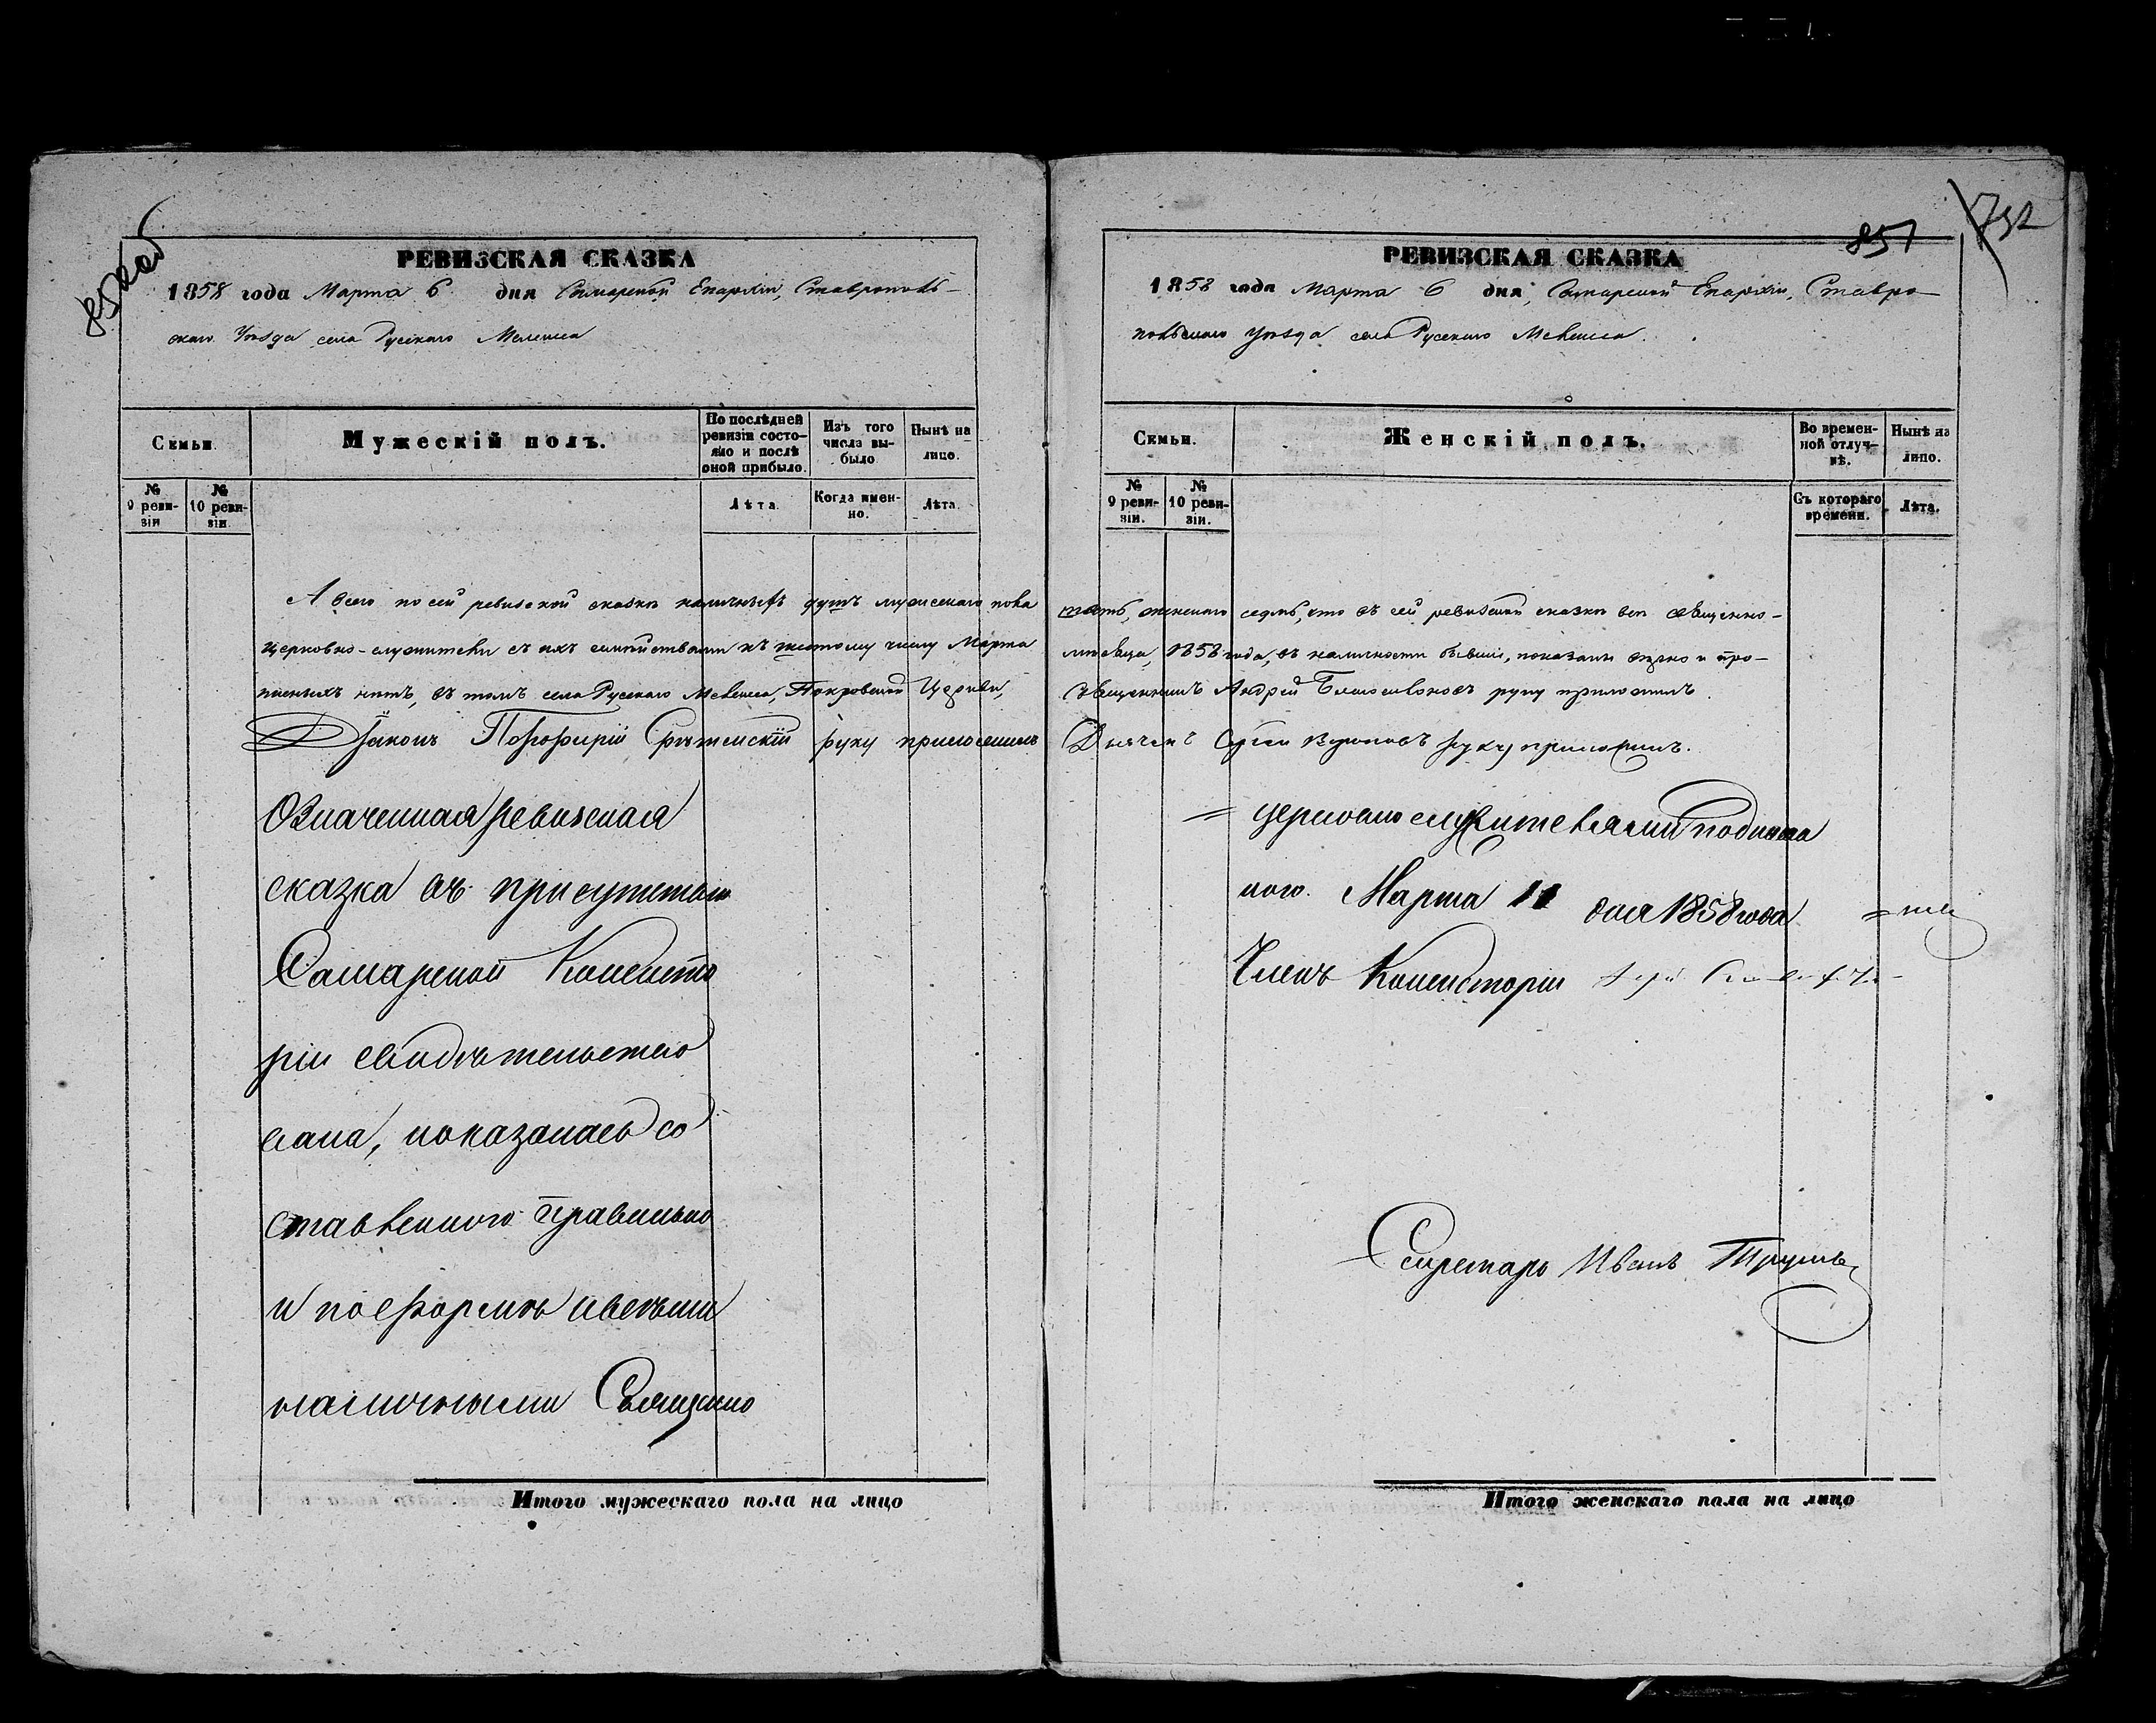 850 об
РЕВИЗСКАЯ СКАЗКА
1858 года Марта 6 дня Самарской Епархіи, Ставрополь-
скаго Уѣзда села Русскаго Мелекеса
Семьи.
Мужескій полъ.
По послѣдней ревизіи состояло и послѣ оной прибыло.
Изъ того числа выбыло
Нынѣ на лицо.
№ 9 ревизіи
№ 10 ревизіи
Лѣта
Когда именно.
Лѣта.
А всего по сей ревизской сказкѣ наличныхъ душъ мужескаго пола
церковно-служители съ ихъ семействами къ шестому числу Марта
писныхъ нѣтъ, въ томъ села Русскаго Мелекеса, Покровской Церкви,
Діаконъ Порфирій руку приложилъ
Означенная ревизская
сказка въ присутствіи
Самарской Консисто
ріи свидѣтельство
вана, показалась со
ставленною правильно
и по формѣ и всѣми
наличными Священно
Итого мужескаго пола на лицо
851
752
РЕВИЗСКАЯ СКАЗКА
1858 года Марта 6 дня, Самарской Епархіи, Ставро-
польскаго Уѣзда села Русскаго Мелекеса.
Семьи.
Женскій полъ.
Во временной отлучкѣ.
Нынѣ на лицо.
№ 9 ревизіи.
№ 10 ревизіи.
Съ котораго времени.
Лѣта.
женскаго седмь, что въ сей ревизской сказкѣ всѣ священно-
мѣсяца, 1858 года, въ наличности бывшіе, показаны и про-
Священникъ Андрей руку приложилъ.
Дьячекъ Сергей руку приложилъ.
= церковнослужителями подписа
ною. Марта 11 дня 1858 года
Членъ Консисторіи
Секретарь Иванъ
Итого женскаго пола на лицо